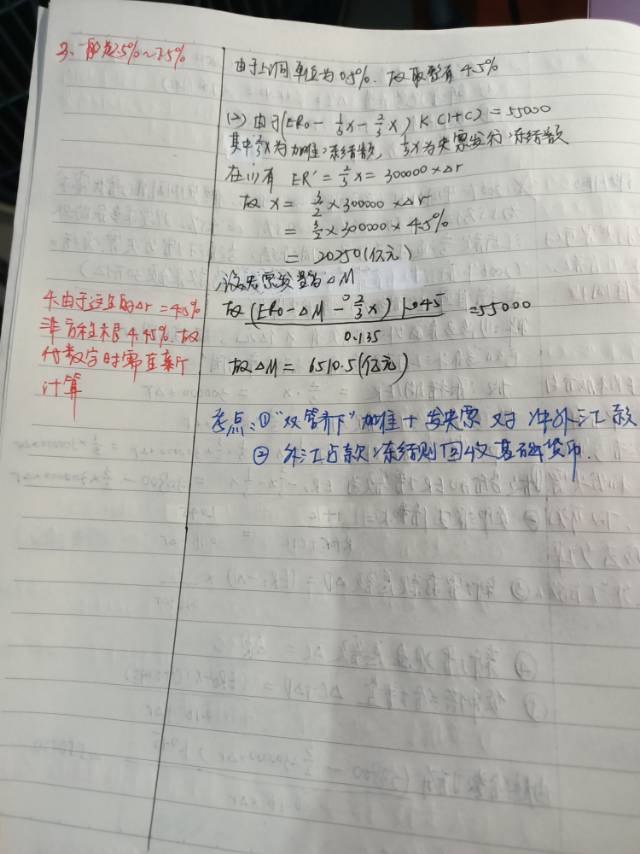 3、一般是5%~7.5%
由于上调单位为0.5%. 故取整有4.5%
(2) 由于(ER₀ - 1/3x - 2/3x) K (1+C) = 55000
其中2/3x为加准冻结额, 1/3x为央票发行冻结额
在(1)有 ER' = 2/3x = 300000×Δr
故 x = 3/2×300000×Δr
= 3/2×300000×4.5%
= 20250(亿元)
设央票发量为ΔM
故 (ER₀ - ΔM - 2/3x) 1.045 / 0.135 = 55000
故ΔM = 6510.5(亿元)
4.由于这里取Δr=4.5%
非方程根4.45%, 故
代数字时需重新
计算
考点: ① "双管齐下" 加准 + 发央票 对冲外汇款
② 外汇占款冻结则回收基础货币.